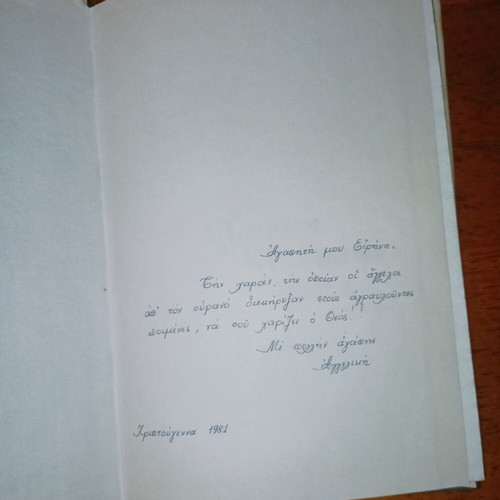 Ἀγαπητή μου Εἰρήνη,
Τὴν χαράν, τὴν ὁποίαν οἱ ἄγγελοι
ἀπ' τὸν οὐρανό διεκήρυξαν στοὺς ἀγραυλοῦντες
ποιμένες, νά σοῦ χαρίζει ὁ Θεός!
Μὲ πολλὴν ἀγάπην
Ἀγγελική
Χριστούγεννα 1981